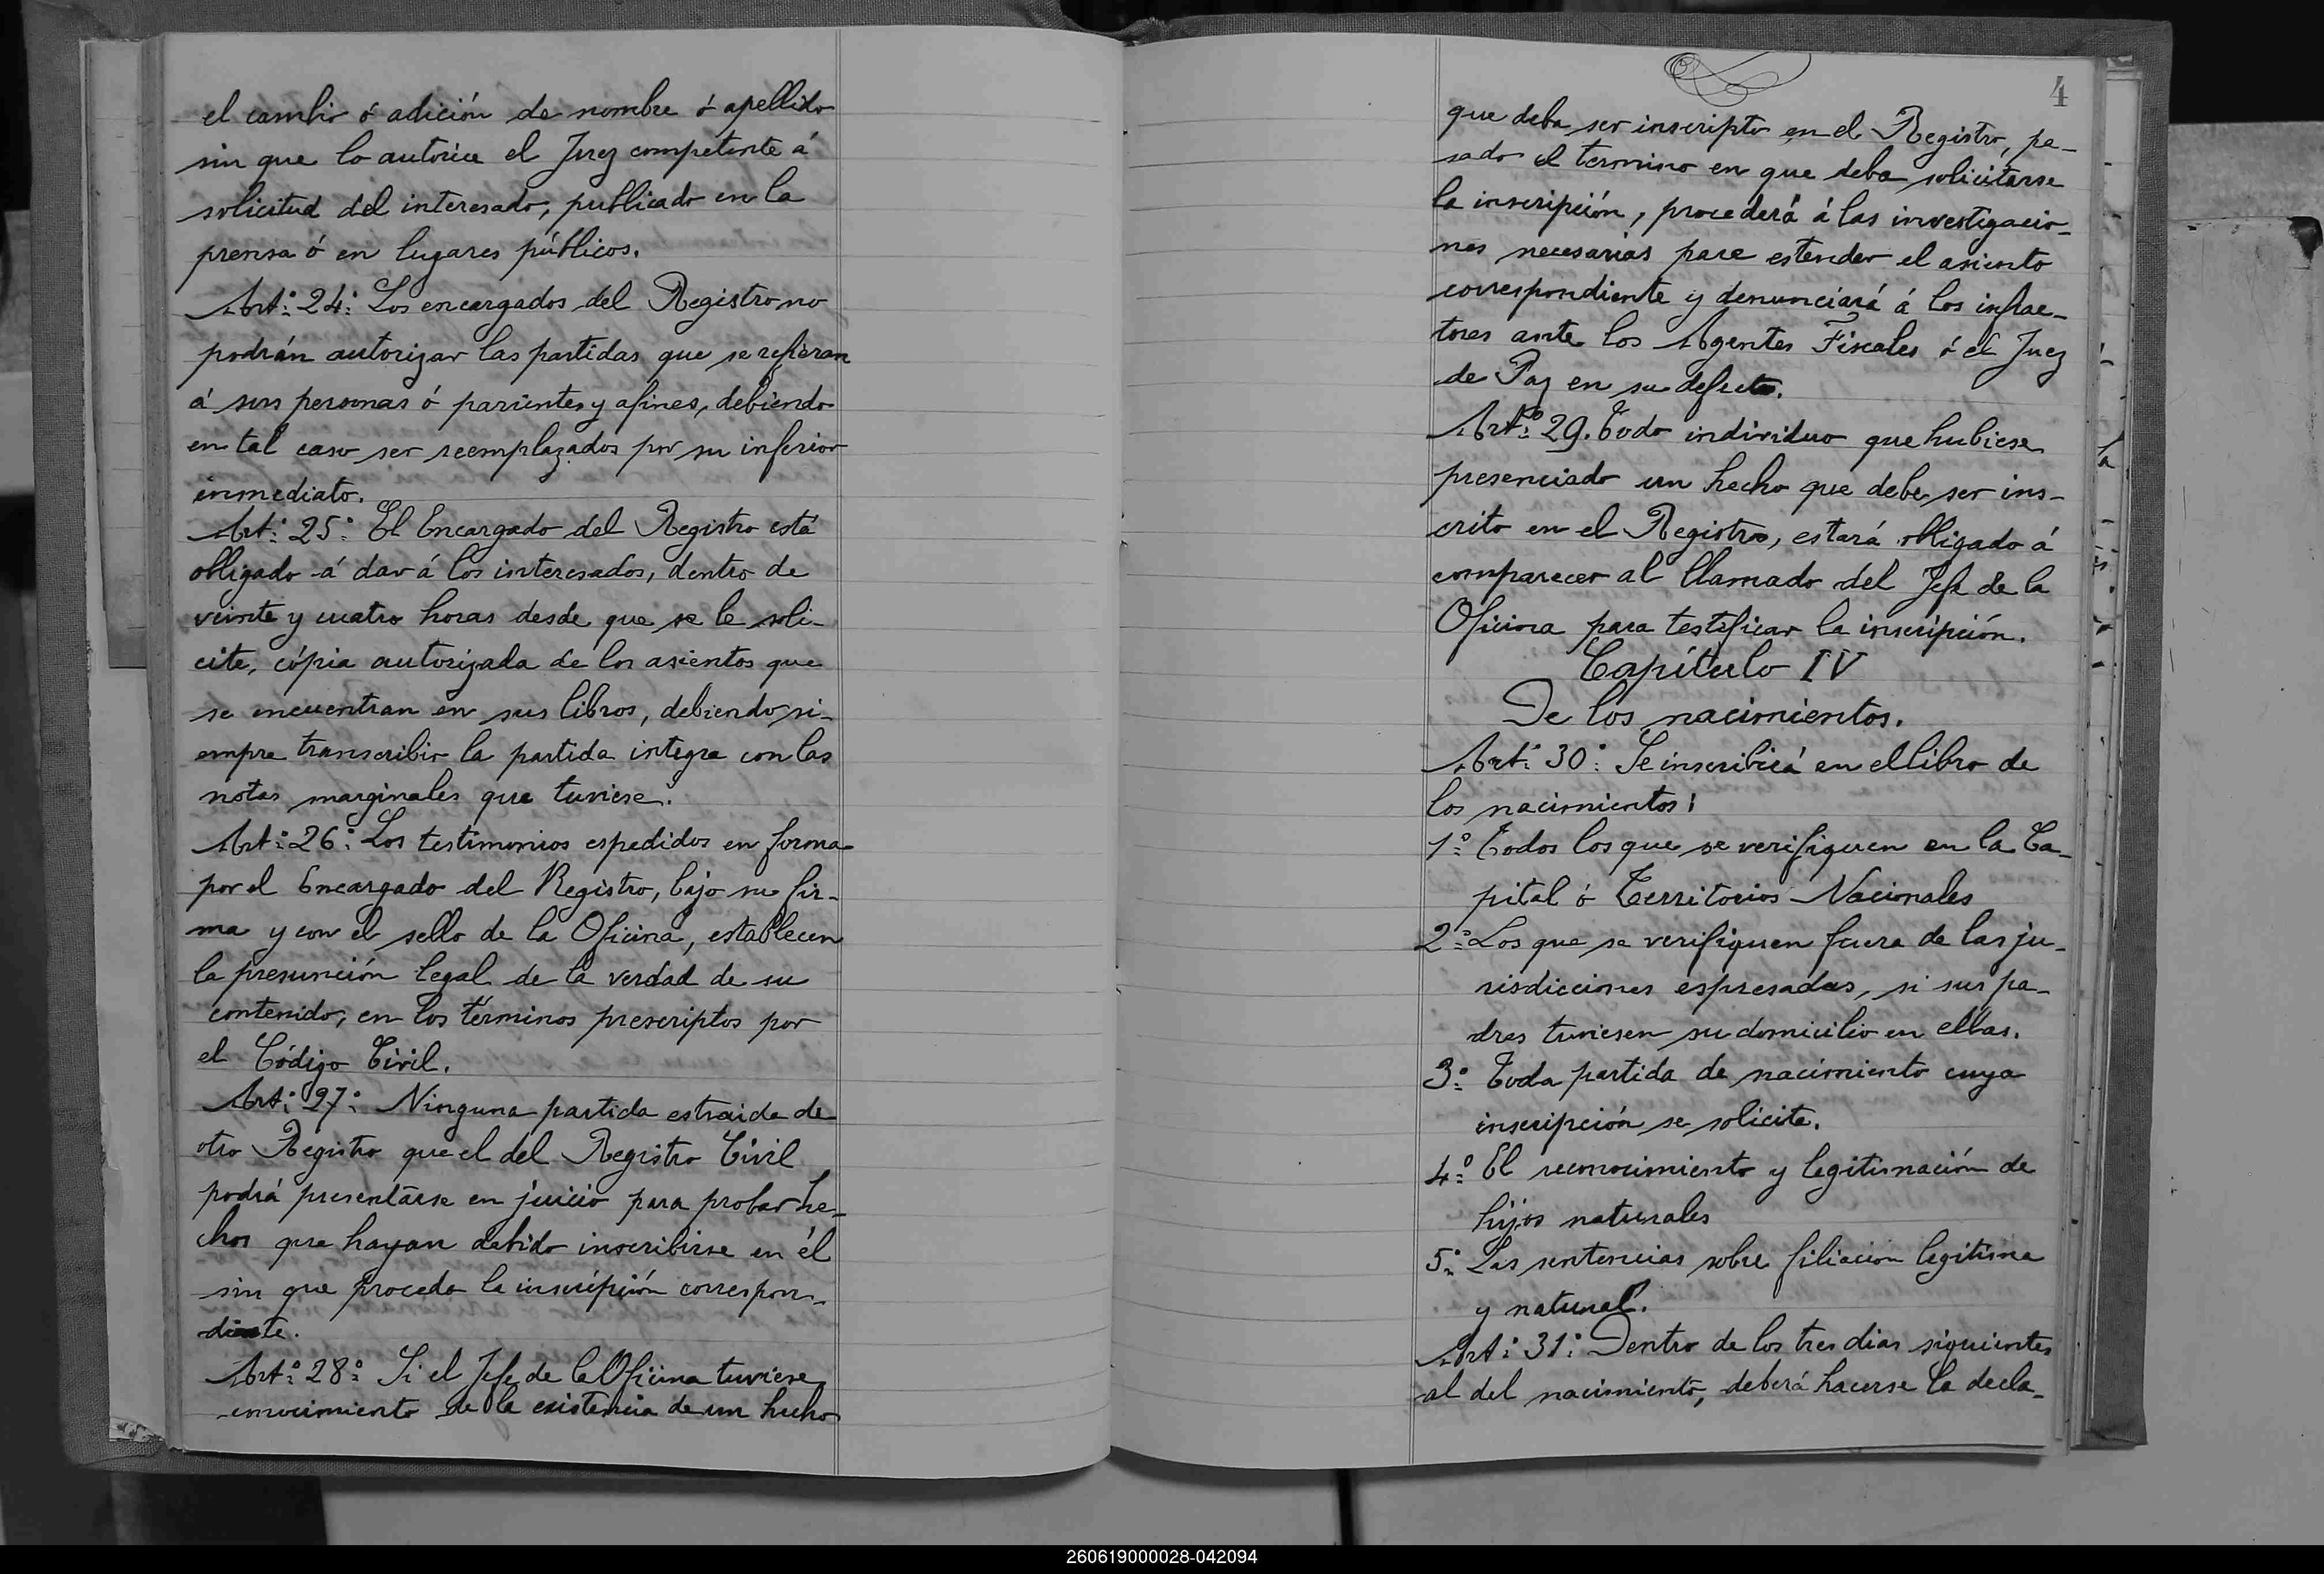 el cambio ó adición de nombre ó apellido
sin que lo autorice el Juez competente á
solicitud del interesado, publicado en la
prensa ó en lugares públicos.
Art.º 24.º Los encargados del Registro no
podrán autorizar las partidas que se refieran
á sus personas ó parientes y afines, debiendo
en tal caso ser reemplazados por su inferior
inmediato.
Art.º 25.º El Encargado del Registro está
obligado á dar á los interesados, dentro de
veinte y cuatro horas desde que se le soli-
cite, cópia autorizada de los asientos que
se encuentran en sus libros, debiendo si-
empre transcribir la partida integra con las
notas marginales que tuviese.
Art.º 26.º Los testimonios espedidos en forma
por el Encargado del Registro, bajo su fir-
ma y con el sello de la Oficina, establecen
la presunción legal de la verdad de su
contenido, en los términos prescriptos por
el Código Civil.
Art.º 27.º Ninguna partida estraida de
otro Registro que el del Registro Civil
podrá presentarse en juicio para probar he-
chos que hayan debido inscribirse en él
sin que proceda la inscripción correspon-
diente.
Art.º 28.º Si el Jefe de la Oficina tuviese
conocimiento de la existencia de un hecho
4
que deba ser inscripto en el Registro, pa-
sado el termino en que deba solicitarse
la inscripción, procederá á las investigacio-
nes necesarias para estender el asiento
correspondiente y denunciará á los infrac-
tores ante los Agentes Fiscales ó el Juez
de Paz en su defecto.
Art.º 29. Todo individuo que hubiese
presenciado un hecho que debe ser ins-
crito en el Registro, estará obligado á
comparecer al llamado del Jefe de la
Oficina para testificar la inscripción.
Capítulo IV
De los nacimientos.
Art.º 30.º Se inscribirá en el libro de
los nacimientos:
1.º Todos los que se verifiquen en la Ca-
pital ó Territorios Nacionales
2.º Los que se verifiquen fuera de las ju-
risdicciones espresadas, si sus pa-
dres tuviesen su domicilio en ellas.
3.º Toda partida de nacimiento cuya
inscripción se solicite.
4.º El reconocimiento y legitimación de
hijos naturales
5.º Las sentencias sobre filiacion legitima
y natural.
Art.º 31.º Dentro de los tres dias siguientes
al del nacimiento, deberá hacerse la decla-
260619000028-042094